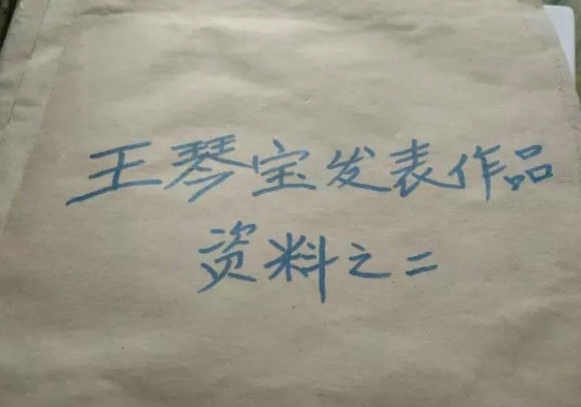 王琴宝发表作品
资料之二